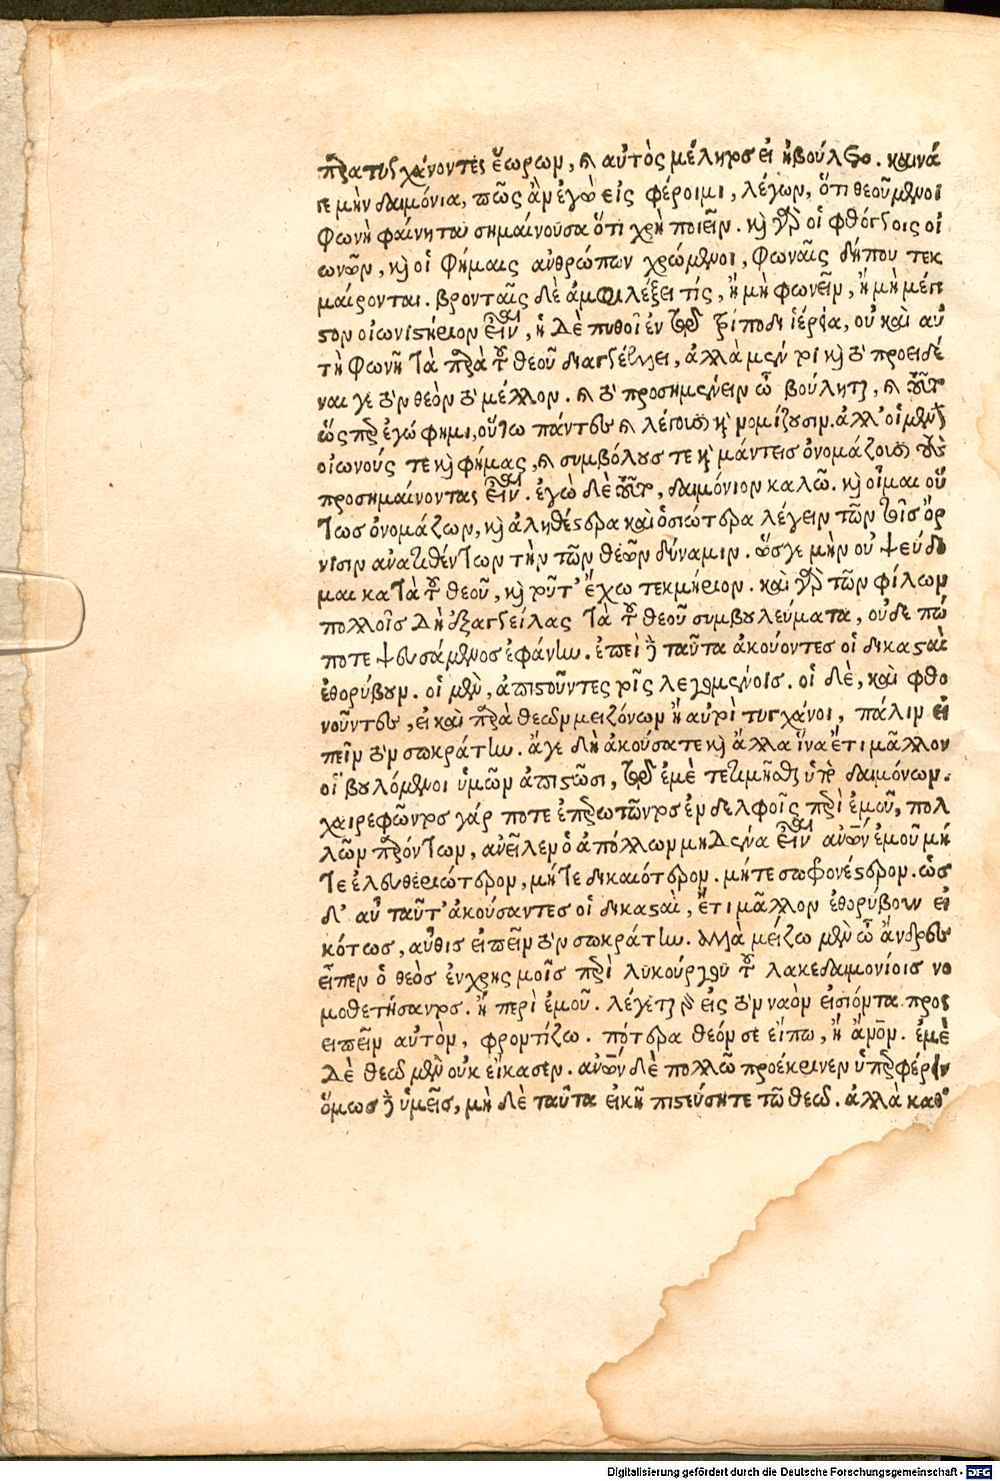 παρατυγχάνοντες ἑώρων, καὶ αὐτὸς μέλητος εἰ ἠβούλετο. καινά
τε μὴν δαιμόνια, πῶς ἂν ἐγὼ εἰς φέροιμι, λέγων, ὅτι θεοῦ μὲν μοι
φωνὴ φαίνηται σημαίνουσα ὅτι χρὴ ποιεῖν. καὶ γὰρ οἱ φθόγγοις οἰ
ωνῶν, καὶ οἱ φήμαις ἀνθρώπων χρώμενοι, φωναῖς δήπου τεκ
μαίρονται. βρονταῖς δὲ ἀμφιλέξει τίς, ἢ μὴ φωνεῖν, ἢ μὴ μέγι
στον οἰωνιστήριον εἶναι, ἡ δὲ πυθοῖ ἐν τῷ τρίποδι ἱέρεια, οὐ καὶ αὐ
τὴ φωνῇ τὰ παρὰ τοῦ θεοῦ διαγγέλλει, ἀλλὰ μέν τοι καὶ τὸ προειδέ
ναι γε τὸν θεὸν τὸ μέλλον. καὶ τὸ προσημαίνειν ᾧ βούληται, καὶ τοῦτο
ὥσπερ ἐγώ φημι, οὕτω πάντες καὶ λέγουσι καὶ νομίζουσιν. ἀλλ' οἱ μὲν
οἰωνούς τε καὶ φήμας, καὶ συμβόλους τε καὶ μάντεις ὀνομάζουσι τοὺς
προσημαίνοντας εἶναι. ἐγὼ δὲ τοῦτο, δαιμόνιον καλῶ. καὶ οἶμαι οὕ
τως ὀνομάζων, καὶ ἀληθέστερα καὶ ὁσιώτερα λέγειν τῶν τοῖς ὄρ
νισιν ἀνατιθέντων τὴν τῶν θεῶν δύναμιν. ὥς γε μὴν οὐ ψεύδο
μαι κατὰ τοῦ θεοῦ, καὶ τοῦτ' ἔχω τεκμήριον. καὶ γὰρ τῶν φίλων
πολλοῖς δὴ ἐξαγγείλας τὰ τοῦ θεοῦ συμβουλεύματα, οὐδέ πώ
ποτε ψευσάμενος ἐφάνην. ἐπεὶ δὲ ταῦτα ἀκούοντες οἱ δικασταὶ
ἐθορύβουν. οἱ μὲν, ἀπιστοῦντες τοῖς λεγομένοις. οἱ δὲ, καὶ φθο
νοῦντες, εἰ καὶ παρὰ θεῶν μειζόνων ἢ αὐτοὶ τυγχάνοι, πάλιν εἰ
πεῖν τὸν σωκράτην. ἄγε δὴ ἀκούσατε καὶ ἄλλα ἵνα ἔτι μᾶλλον
οἱ βουλόμενοι ὑμῶν ἀπιστῶσι, τῷ ἐμὲ τετιμῆσθαι ὑπὸ δαιμόνων.
χαιρεφῶντος γάρ ποτε ἐπερωτῶντος ἐν δελφοῖς περὶ ἐμοῦ, πολ
λῶν παρόντων, ἀνεῖλεν ὁ ἀπόλλων μηδένα εἶναι ἀνθρώπων ἐμοῦ μή
τε ἐλευθεριώτερον, μήτε δικαιότερον. μήτε σωφρονέστερον. ὡς
δ' αὖ ταῦτ' ἀκούσαντες οἱ δικασταὶ, ἔτι μᾶλλον ἐθορύβουν εἰ
κότως, αὖθις εἰπεῖν τὸν σωκράτην. ἀλλὰ μείζω μὲν ὦ ἄνδρες
εἶπεν ὁ θεὸς ἐν χρησμοῖς περὶ λυκούργου τοῦ λακεδαιμονίοις νο
μοθετήσαντος. ἢ περὶ ἐμοῦ. λέγεται γὰρ εἰς τὸν ναὸν εἰσιόντα προς
ειπεῖν αὐτὸν, φροντίζω. πότερα θεόν σε εἴπω, ἢ ἄνθρωπον. ἐμὲ
δὲ θεῷ μὲν οὐκ εἴκασεν. ἀνθρώπων δὲ πολλῷ προέκρινεν ὑπερφέρειν
ὅμως δὲ ὑμεῖς, μὴ δὲ ταῦτα εἰκῆ πιστεύσητε τῷ θεῷ. ἀλλὰ καθ'
Digitalisierung gefördert durch die Deutsche Forschungsgemeinschaft - DFG